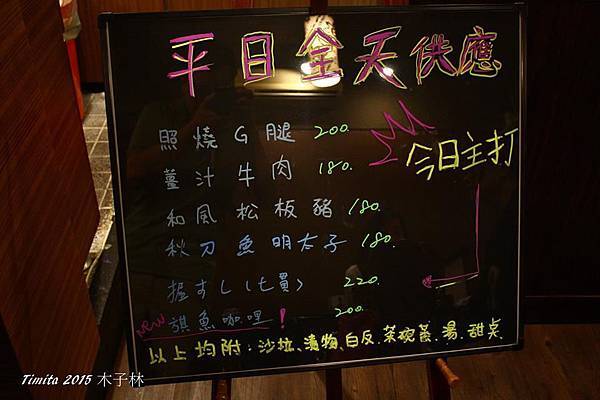 平日全天供應
照燒G腿 200.
今日主打
薑汁牛肉 180.
和風松板豬 180.
秋刀魚明太子 180.
握すし(七貫) 220.
NEW 旗魚咖哩! 200.
以上均附:沙拉、漬物、白反、茶碗蒸、湯、甜点
Timita 2015 木子林